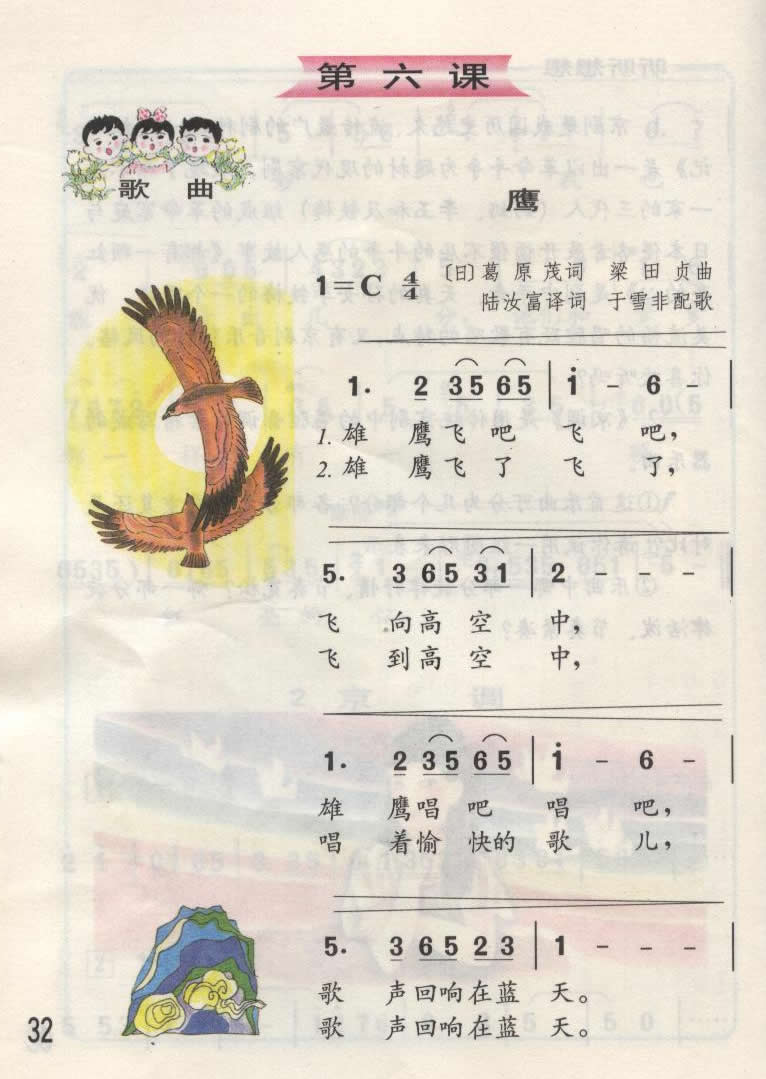 第六课
歌曲
鹰
1=C 4/4
〔日〕葛原茂词 梁田贞曲
陆汝富译词 于雪非配歌
1. 2 35 65 | i - 6 - |
1. 雄 鹰飞 吧 飞 吧,
2. 雄 鹰飞 了 飞 了,
5. 3 65 31 | 2 - - - |
飞 向高 空 中,
飞 到高 空 中,
1. 2 35 65 | i - 6 - |
雄 鹰唱 吧 唱 吧,
唱 着愉 快的 歌 儿,
5. 3 65 23 | 1 - - - |
歌 声回响在蓝 天。
歌 声回响在蓝 天。
32